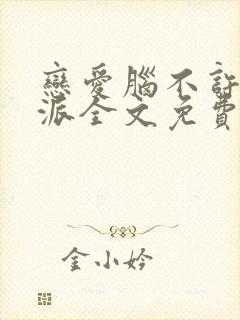 戀愛腦不許
派全文免費
金小妗